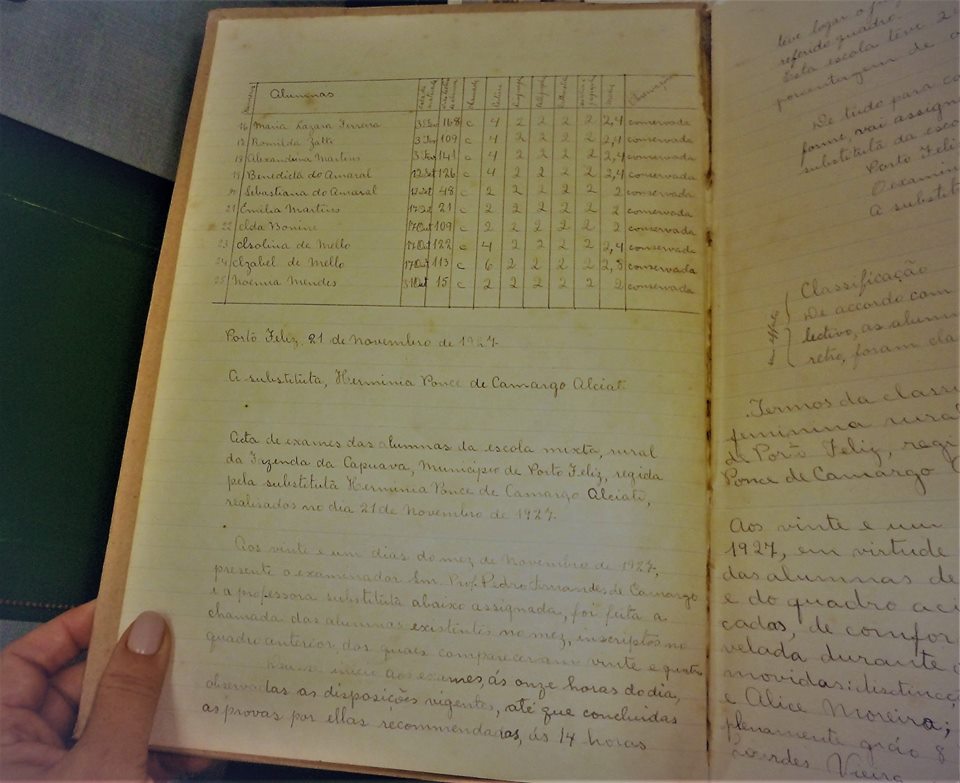 Alumnas
16 Maria Lazara Ferreira 168 c 4 2 2 2 2 2,4 conservada
17 Romilda 109 c 4 2 2 2 2 2,4 conservada
18 Alexandrina Martins 141 c 4 2 2 2 2 2,4 conservada
19 Benedicta do Amaral 126 c 4 2 2 2 2 2,4 conservada
20 Sebastiana do Amaral 48 c 2 2 2 2 2 2 conservada
21 Emilia Martins 21 c 2 2 2 2 2 2 conservada
22 Elda Bonini 109 c 2 2 2 2 2 2 conservada
23 de Mello 122 c 4 2 2 2 2 2,4 conservada
24 Izabel de Mello 113 c 6 2 2 2 2 2,8 conservada
25 Noemia Mendes 15 c 2 2 2 2 2 2 conservada
Porto Feliz, 21 de Novembro de 1927
A substituta, Herminia Ponce de Camargo Alciati
Acta de exames das alumnas da escola mixta, rural
da Fazenda da Capuava, Municipio de Porto Feliz, regida
pela substituta Herminia Ponce de Camargo Alciati,
realisados no dia 21 de Novembro de 1927.
Aos vinte e um dias do mez de Novembro de 1927,
presente o examinador Snr. Prof. Pedro Fernandes de Camargo
e a professora substituta abaixo assignada, foi feita a
chamada das alumnas existentes no mez, inscriptas no
quadro anterior, das quaes compareceram vinte e quatro
inicio aos exames, ás onze horas do dia,
observadas as disposições vigentes, até que concluidas
as provas por ellas recommendadas, ás 14 horas
teve logar o
referido quadro.
Esta escola teve 2
porcentagem de
De tudo para co
forme, vai assign
substituta da esco
Porto Feli
O examin
A substit
Classificação
De accordo com
lectivo, as alumn
retro, foram cla
Termos da classi
feminina rural
de Porto Feliz, regi
Ponce de Camargo
Aos vinte e um
1927, em virtude
das alumnas de
e do quadro aci
cadas, de confor
velada durante
movidas: distincç
e Alice Moreira;
plenamente gráo 8
Lourdes Vieira